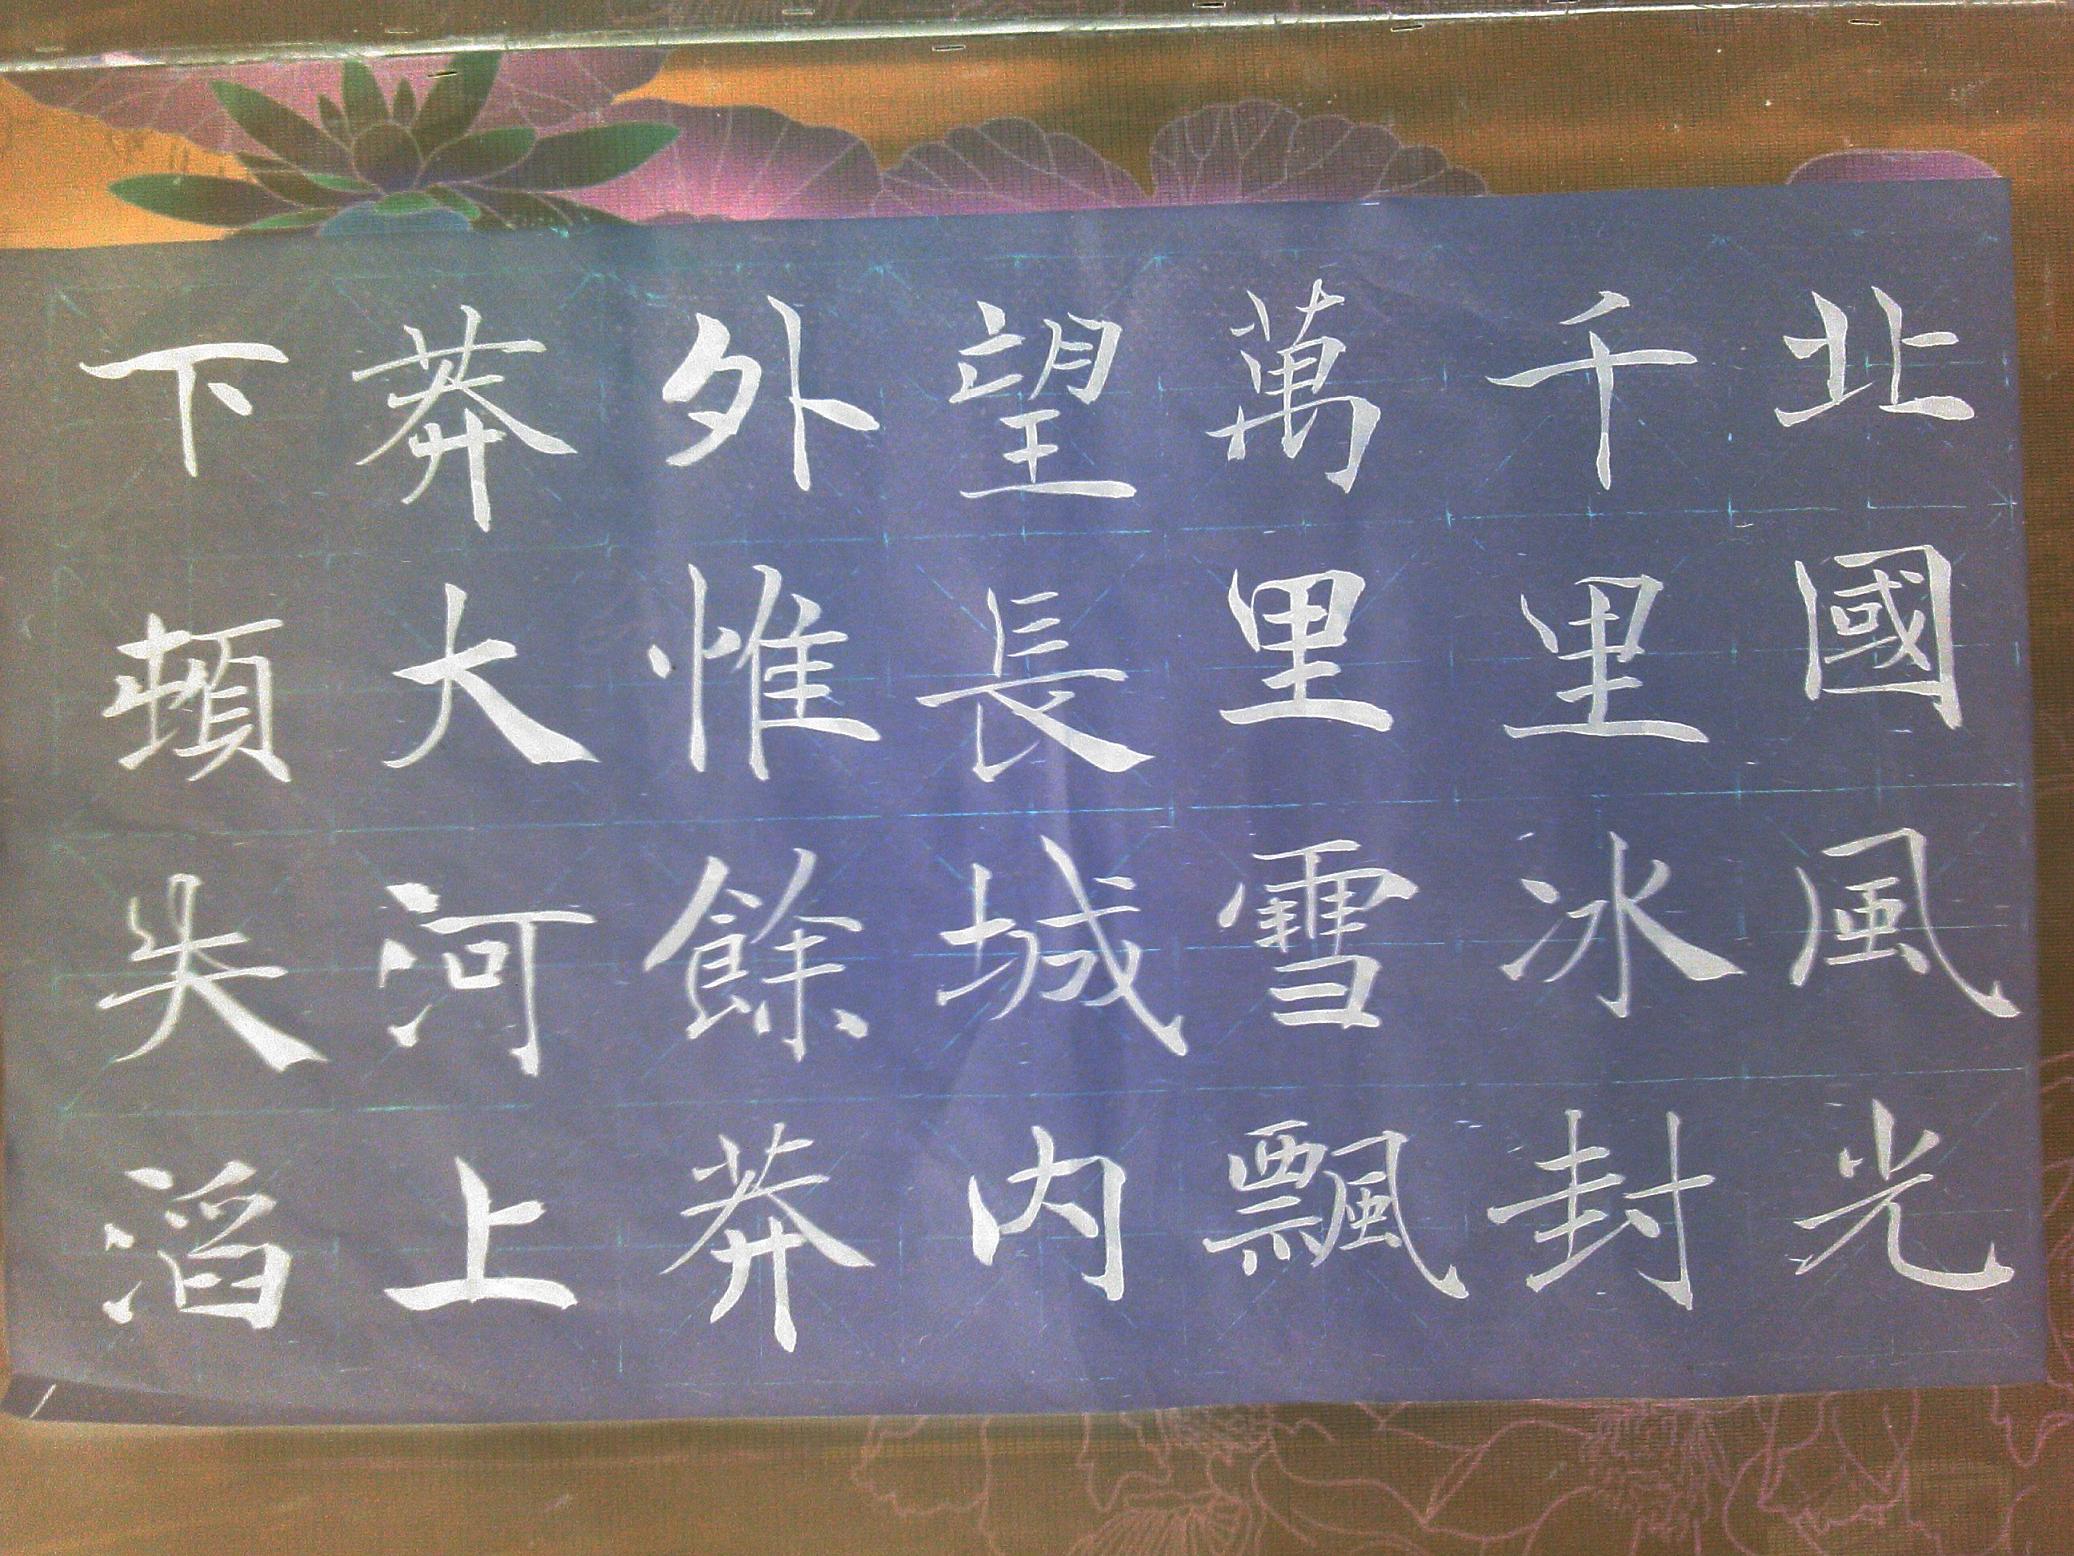 北國風光
千里冰封
萬里雪飄
望長城内
外惟餘莽
莽大河上
下頓失滔